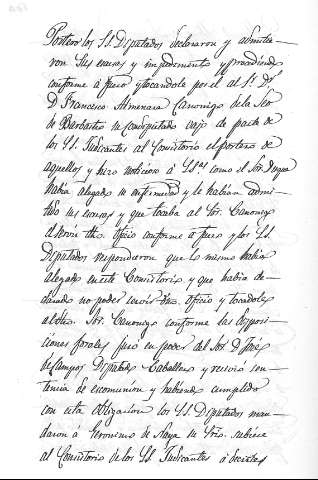 Postero los SS. Diputados declararon y admitie-
ron sus excusas y impedimento y procediendo
conforme á fuero y tocandole por el al Sr. Dr.
D. Francisco Almenara Canonigo de la Seo
de Barbastro su Condiputado vajo de parte de
los SS. Judicantes al Consistorio el portero de
aquellos y hizo notorio á SSas como el Sor. Duque
havia alegado su enfermedad y le havian admi-
tido sus excusas y que tocaba al Sor. Canonigo
el servir dho. oficio conforme á fuero y los SS.
Diputados respondieron que lo mismo havia
alegado en este Consistorio y que havia de-
clarado no poder servir dho. oficio y tocandole
al dho. Sor. Canonigo conforme las disposi-
ciones forales juró en poder del Sor. D. Josef
de Campos Diputado Caballero y recivió sen-
tencia de excomunion y habiendo cumplido
con esta obligacion los SS. Diputados man-
daron á Geronimo de Naya su Srio. subiese
al Consistorio de los SS. Judicantes á decirles